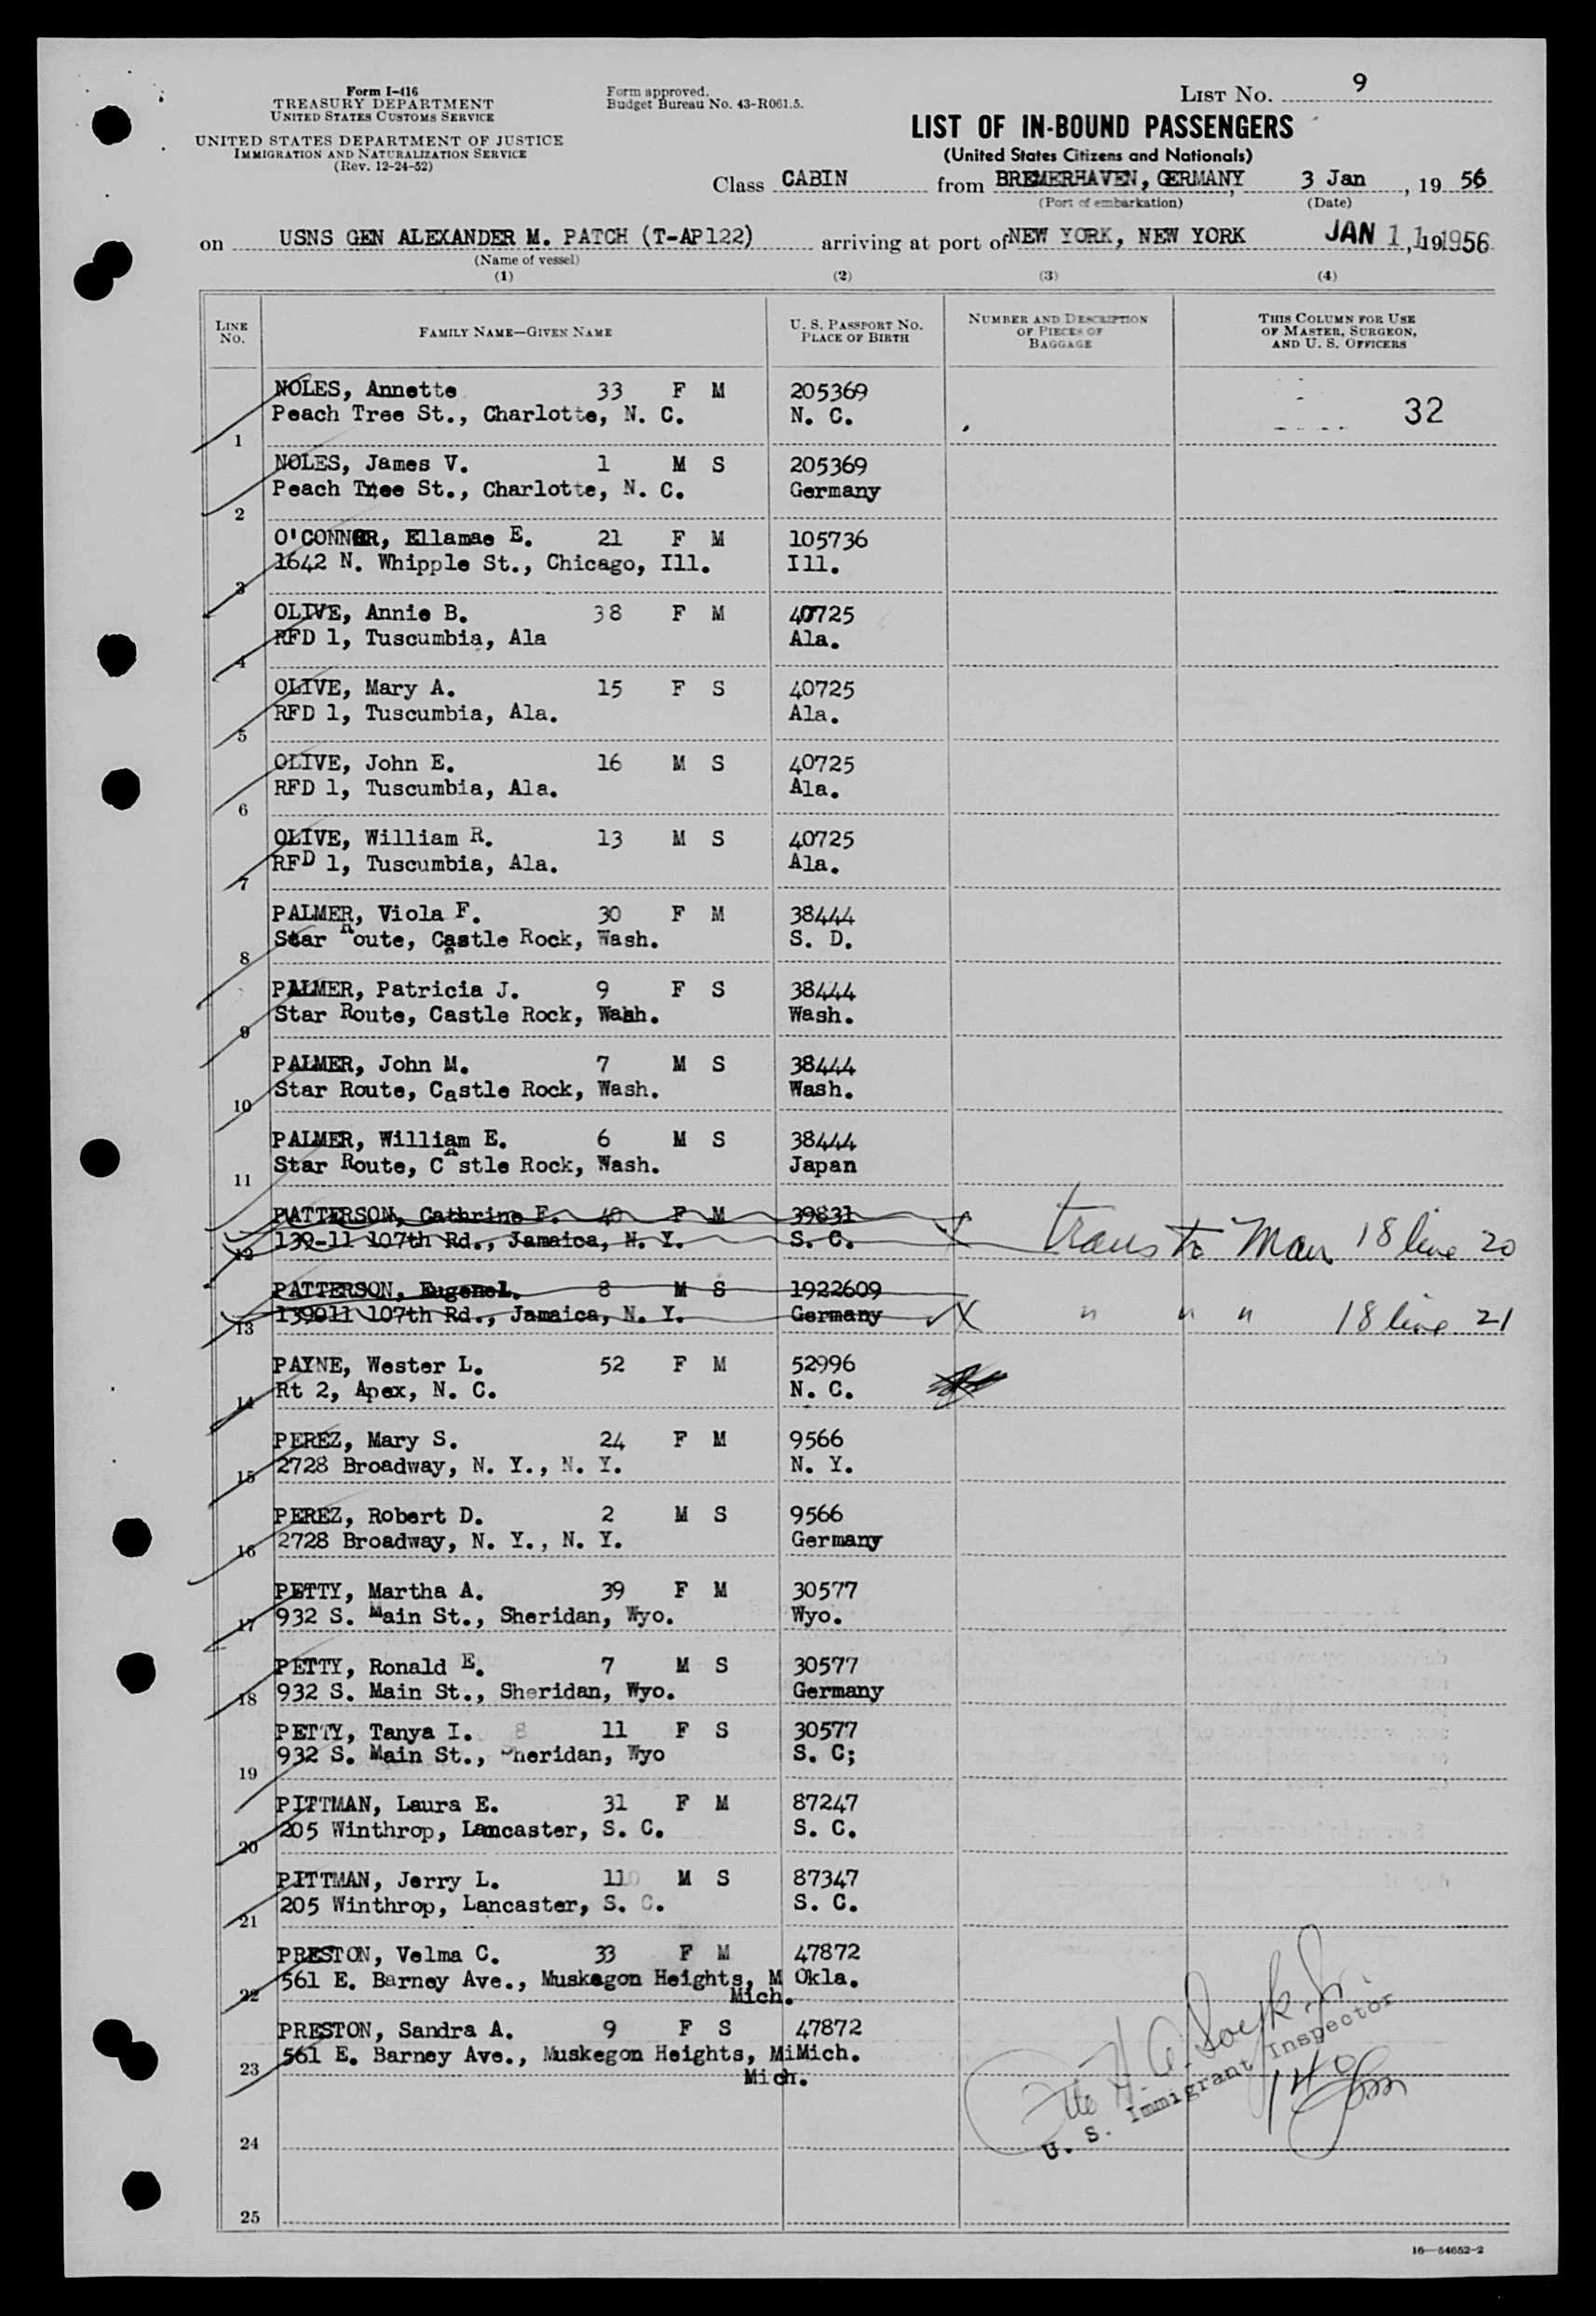 Form I-416
TREASURY DEPARTMENT
UNITED STATES CUSTOMS SERVICE
UNITED STATES DEPARTMENT OF JUSTICE
IMMIGRATION AND NATURALIZATION SERVICE
(Rev. 12-24-52)
Form approved.
Budget Bureau No. 43-R061.5.
LIST NO. 9
LIST OF IN-BOUND PASSENGERS
(United States Citizens and Nationals)
Class CABIN from BREMERHAVEN, GERMANY, 3 Jan, 19 56
(Port of embarkation) (Date)
on USNS GEN ALEXANDER M. PATCH (T-AP122) arriving at port of NEW YORK, NEW YORK JAN 11, 19 1956
(Name of vessel)
(1) (2) (3) (4)
LINE NO. FAMILY NAME—GIVEN NAME U. S. PASSPORT NO. PLACE OF BIRTH NUMBER AND DESCRIPTION OF PIECES OF BAGGAGE THIS COLUMN FOR USE OF MASTER, SURGEON, AND U. S. OFFICERS
NOLES, Annette 33 F M 205369
Peach Tree St., Charlotte, N. C. N. C. 32
1
NOLES, James V. 1 M S 205369
Peach Tree St., Charlotte, N. C. Germany
2
O'CONNOR, Ellamae E. 21 F M 105736
1642 N. Whipple St., Chicago, Ill. Ill.
3
OLIVE, Annie B. 38 F M 40725
RFD 1, Tuscumbia, Ala Ala.
4
OLIVE, Mary A. 15 F S 40725
RFD 1, Tuscumbia, Ala. Ala.
5
OLIVE, John E. 16 M S 40725
RFD 1, Tuscumbia, Ala. Ala.
6
OLIVE, William R. 13 M S 40725
RFD 1, Tuscumbia, Ala. Ala.
7
PALMER, Viola F. 30 F M 38444
Star Route, Castle Rock, Wash. S. D.
8
PALMER, Patricia J. 9 F S 38444
Star Route, Castle Rock, Wash. Wash.
9
PALMER, John M. 7 M S 38444
Star Route, Castle Rock, Wash. Wash.
10
PALMER, William E. 6 M S 38444
Star Route, Castle Rock, Wash. Japan
11
PATTERSON, Cathrine F. 40 F M 39831
139-11 107th Rd., Jamaica, N. Y. S. C. X trans to Man 18 line 20
12
PATTERSON, Eugene L. 8 M S 1922609
139011 107th Rd., Jamaica, N. Y. Germany X " " " 18 line 21
13
PAYNE, Wester L. 52 F M 52996
Rt 2, Apex, N. C. N. C.
14
PEREZ, Mary S. 24 F M 9566
2728 Broadway, N. Y., N. Y. N. Y.
15
PEREZ, Robert D. 2 M S 9566
2728 Broadway, N. Y., N. Y. Germany
16
PETTY, Martha A. 39 F M 30577
932 S. Main St., Sheridan, Wyo. Wyo.
17
PETTY, Ronald E. 7 M S 30577
932 S. Main St., Sheridan, Wyo. Germany
18
PETTY, Tanya I. 8 11 F S 30577
932 S. Main St., Sheridan, Wyo S. C;
19
PITTMAN, Laura E. 31 F M 87247
205 Winthrop, Lancaster, S. C. S. C.
20
PITTMAN, Jerry L. 11 M S 87347
205 Winthrop, Lancaster, S. C. S. C.
21
PRESTON, Velma C. 33 F M 47872
561 E. Barney Ave., Muskegon Heights, M Okla.
22 Mich.
PRESTON, Sandra A. 9 F S 47872
561 E. Barney Ave., Muskegon Heights, Mi Mich.
23 Mich.
U. S. Immigrant Inspector
140
24
25
16—54652-2